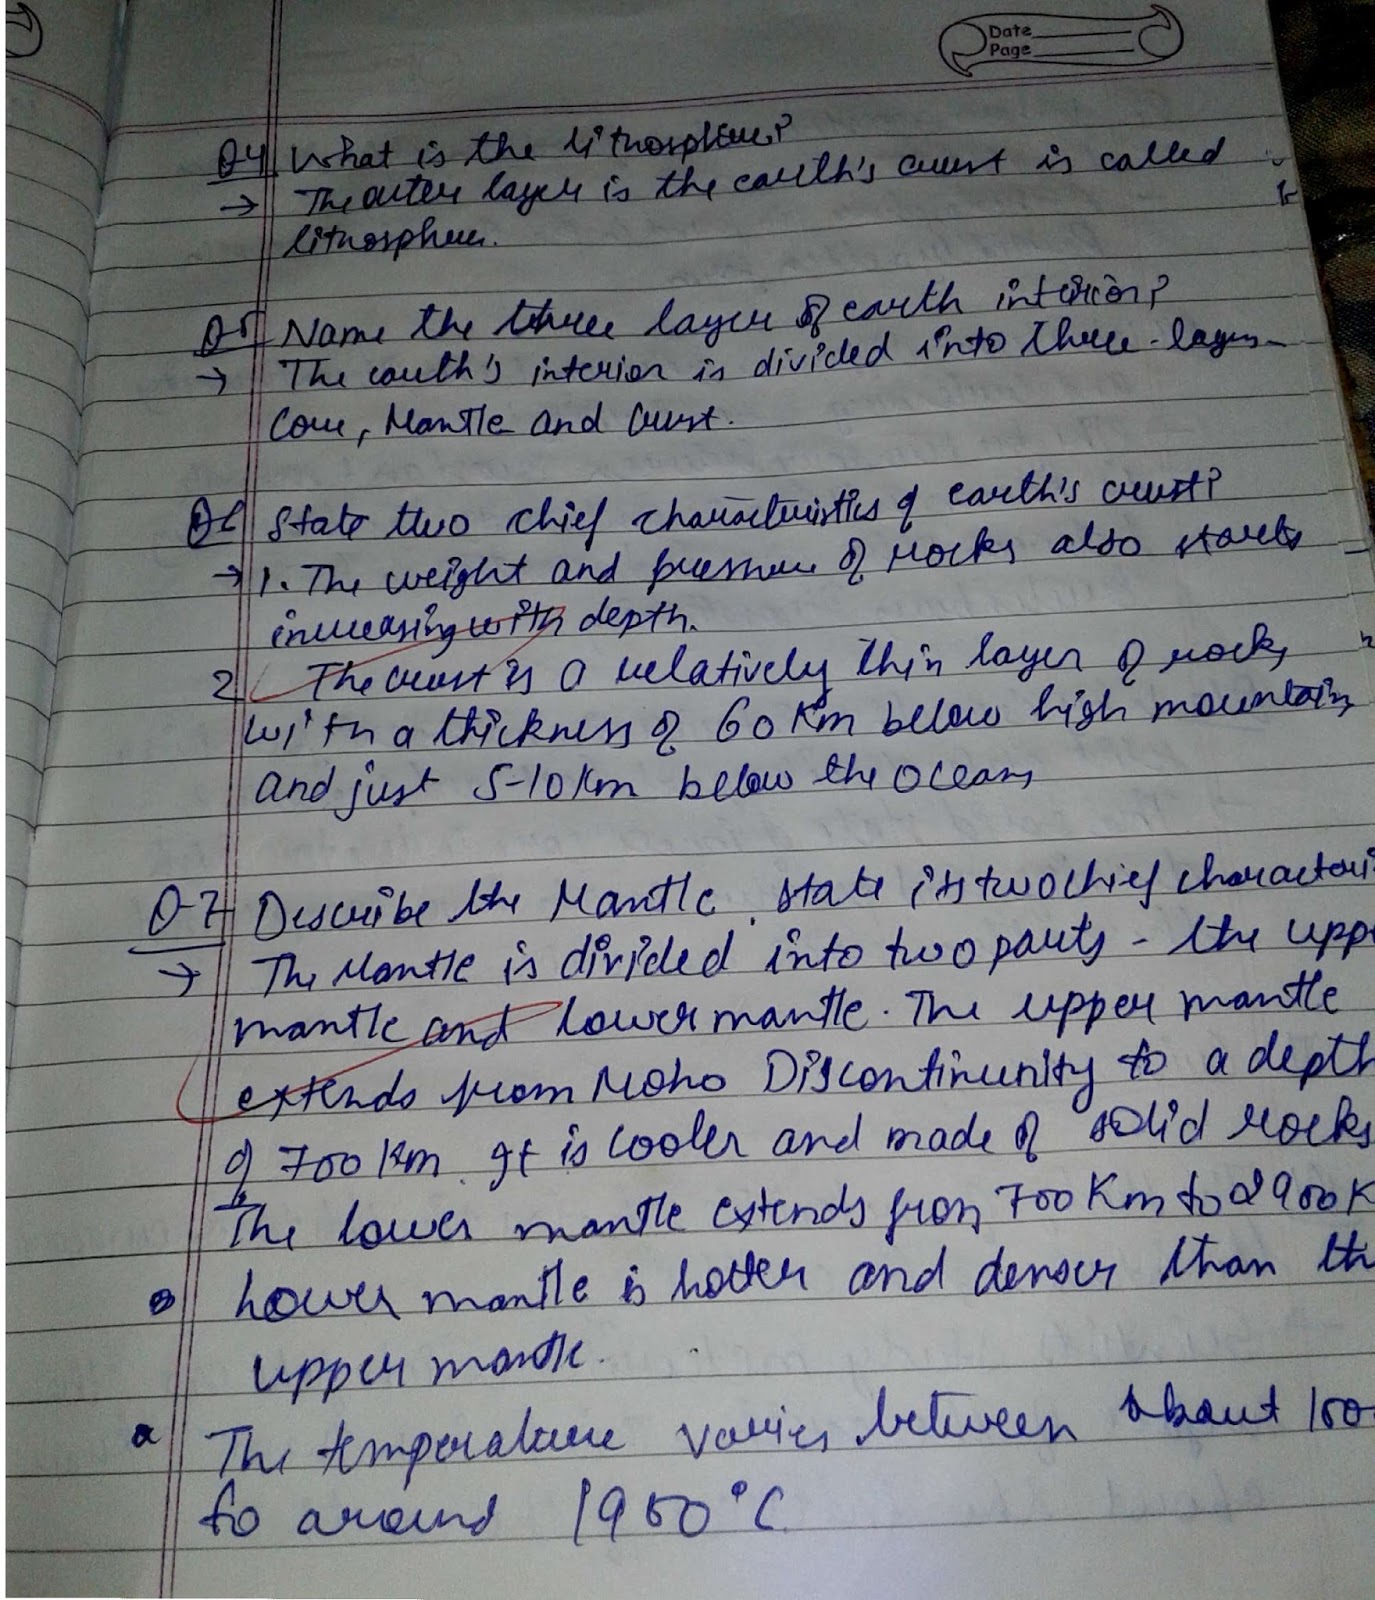 Date
Page
Q4 What is the lithosphere?
→ The outer layer is the earth's crust is called
lithosphere.
Q5 Name the three layer of earth interior?
→ The earth's interior is divided into three layers-
Core, Mantle and Crust.
Q6 State two chief characteristics of earth's crust?
→ 1. The weight and pressure of rocks also starts
increasing with depth.
2 The crust is a relatively thin layer of rocks
with a thickness of 60 Km below high mountains
and just 5-10 Km below the oceans
Q7 Describe the Mantle. state its two chief characteri
→ The Mantle is divided into two parts - the upp
mantle and lower mantle. The upper mantle
extends from Moho Discontinunity to a depth
of 700 Km. It is cooler and made of solid rocks
The lower mantle extends from 700 Km to 2900 K
Lower mantle is hotter and denser than th
upper mantle.
The temperature varies between about
to around 1950°C